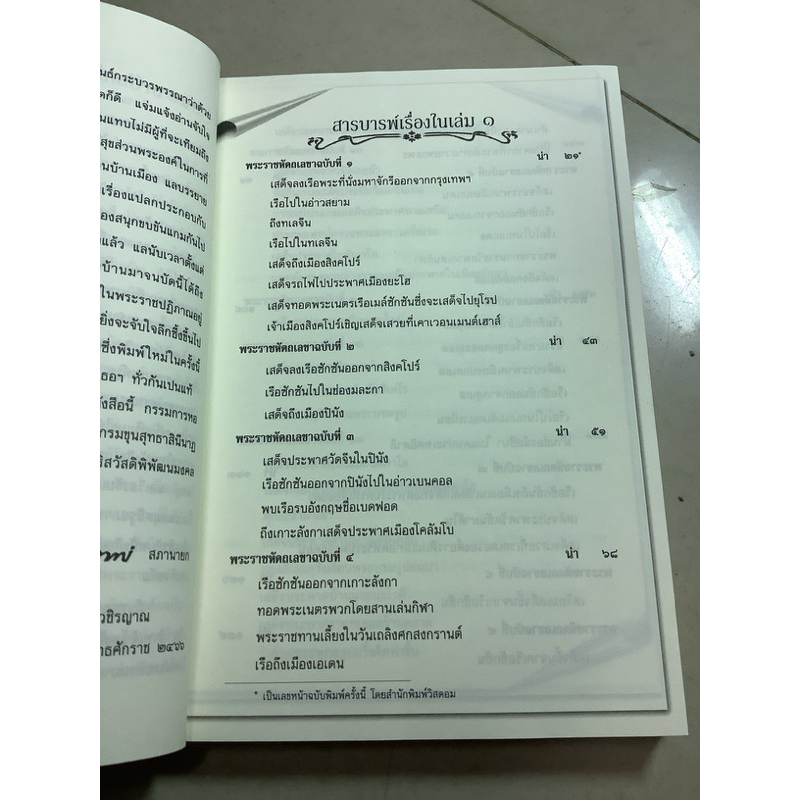 นธ์กระบวรพรรณาว่าด้วย
ดก็ดี แจ่มแจ้งอ่านจับใจ
นแทบไม่มีผู้ที่จะเทียมถึง
สุขส่วนพระองค์ในการที่
นบ้านเมือง แลบรรยาย
เรื่องแปลกประกอบกัน
องสนุกขบขันแกมกันไป
แล้ว แลนับเวลาตั้งแต่
บ้านมาจนบัดนี้ได้ถึง
ในพระราชปฏิภาณอยู่
ยิ่งจะจับใจลึกซึ้งขึ้นไป
ซึ่งพิมพ์ใหม่ในครั้งนี้
เธอฯ ทั่วกันเปนแท้
งสือนี้ กรรมการหอ
กรมขุนสุทธาสินีนาฏ
สวัสดิพิพัฒนมงคล
สภานายก
วชิรญาณ
ทธศักราช ๒๔๖๖
สารบารพ์เรื่องในเล่ม ๑
พระราชหัดถเลขาฉบับที่ ๑ น่า ๒๑*
เสด็จลงเรือพระที่นั่งมหาจักรีออกจากกรุงเทพฯ
เรือไปในอ่าวสยาม
ถึงทเลจีน
เรือไปในทเลจีน
เสด็จถึงเมืองสิงคโปร์
เสด็จรถไฟไปประพาศเมืองยะโฮ
เสด็จทอดพระเนตรเรือเมล์ซักซันซึ่งจะเสด็จไปยุโรป
เจ้าเมืองสิงคโปร์เชิญเสด็จเสวยที่เคาเวอนเมนต์เฮาส์
พระราชหัดถเลขาฉบับที่ ๒ น่า ๔๓
เสด็จลงเรือซักซันออกจากสิงคโปร์
เรือซักซันไปในช่องมละกา
เสด็จถึงเมืองปินัง
พระราชหัดถเลขาฉบับที่ ๓ น่า ๕๑
เสด็จประพาศวัดจีนในปินัง
เรือซักซันออกจากปินังไปในอ่าวเบนคอล
พบเรือรบอังกฤษชื่อเบดฟอด
ถึงเกาะลังกาเสด็จประพาศเมืองโคลัมโบ
พระราชหัดถเลขาฉบับที่ ๔ น่า ๖๘
เรือซักซันออกจากเกาะลังกา
ทอดพระเนตรพวกโดยสานเล่นกิฬา
พระราชทานเลี้ยงในวันเถลิงศกสงกรานต์
เรือถึงเมืองเอเดน
* เป็นเลขหน้าฉบับพิมพ์ครั้งนี้ โดยสำนักพิมพ์วิสดอม